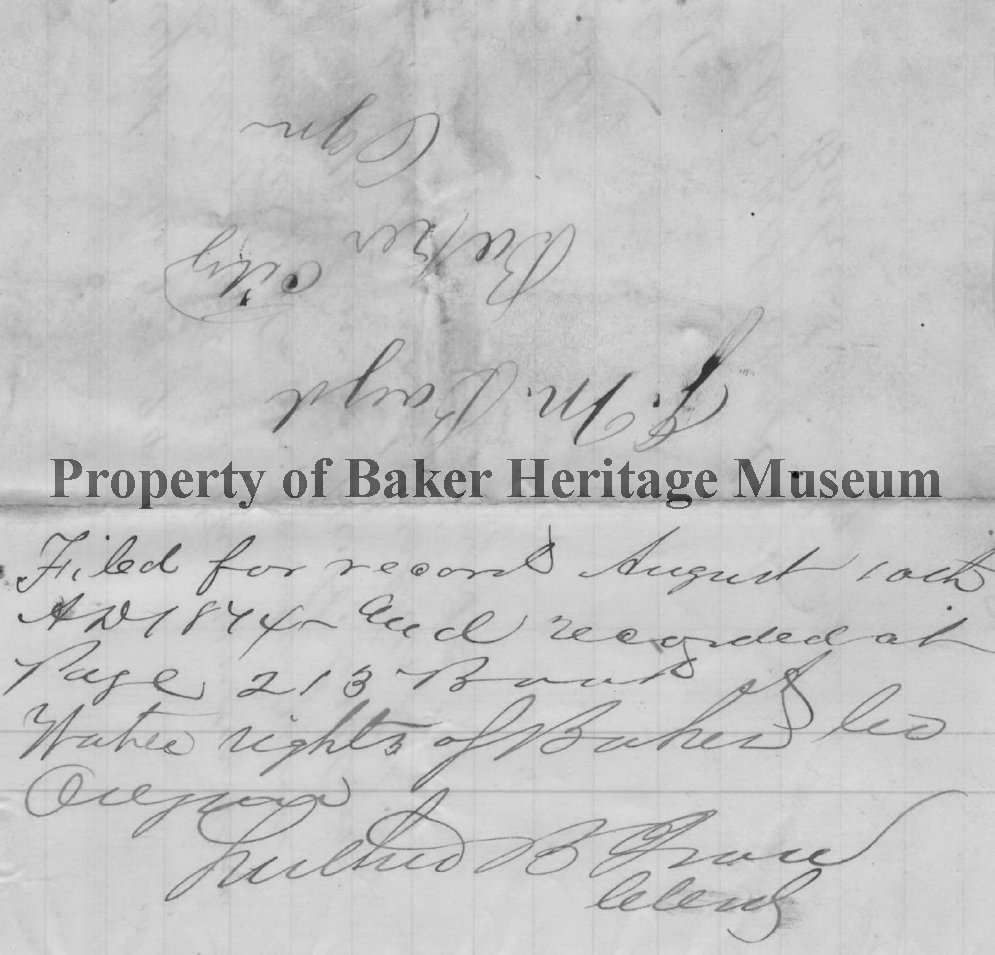 J. M. Boyd
Baker City
Ogn
Property of Baker Heritage Museum
Filed for record August 10th
AD 1874 and recorded at
Page 213 Book A
Water rights of Baker Co
Oregon
Luther B Ison
Clerk